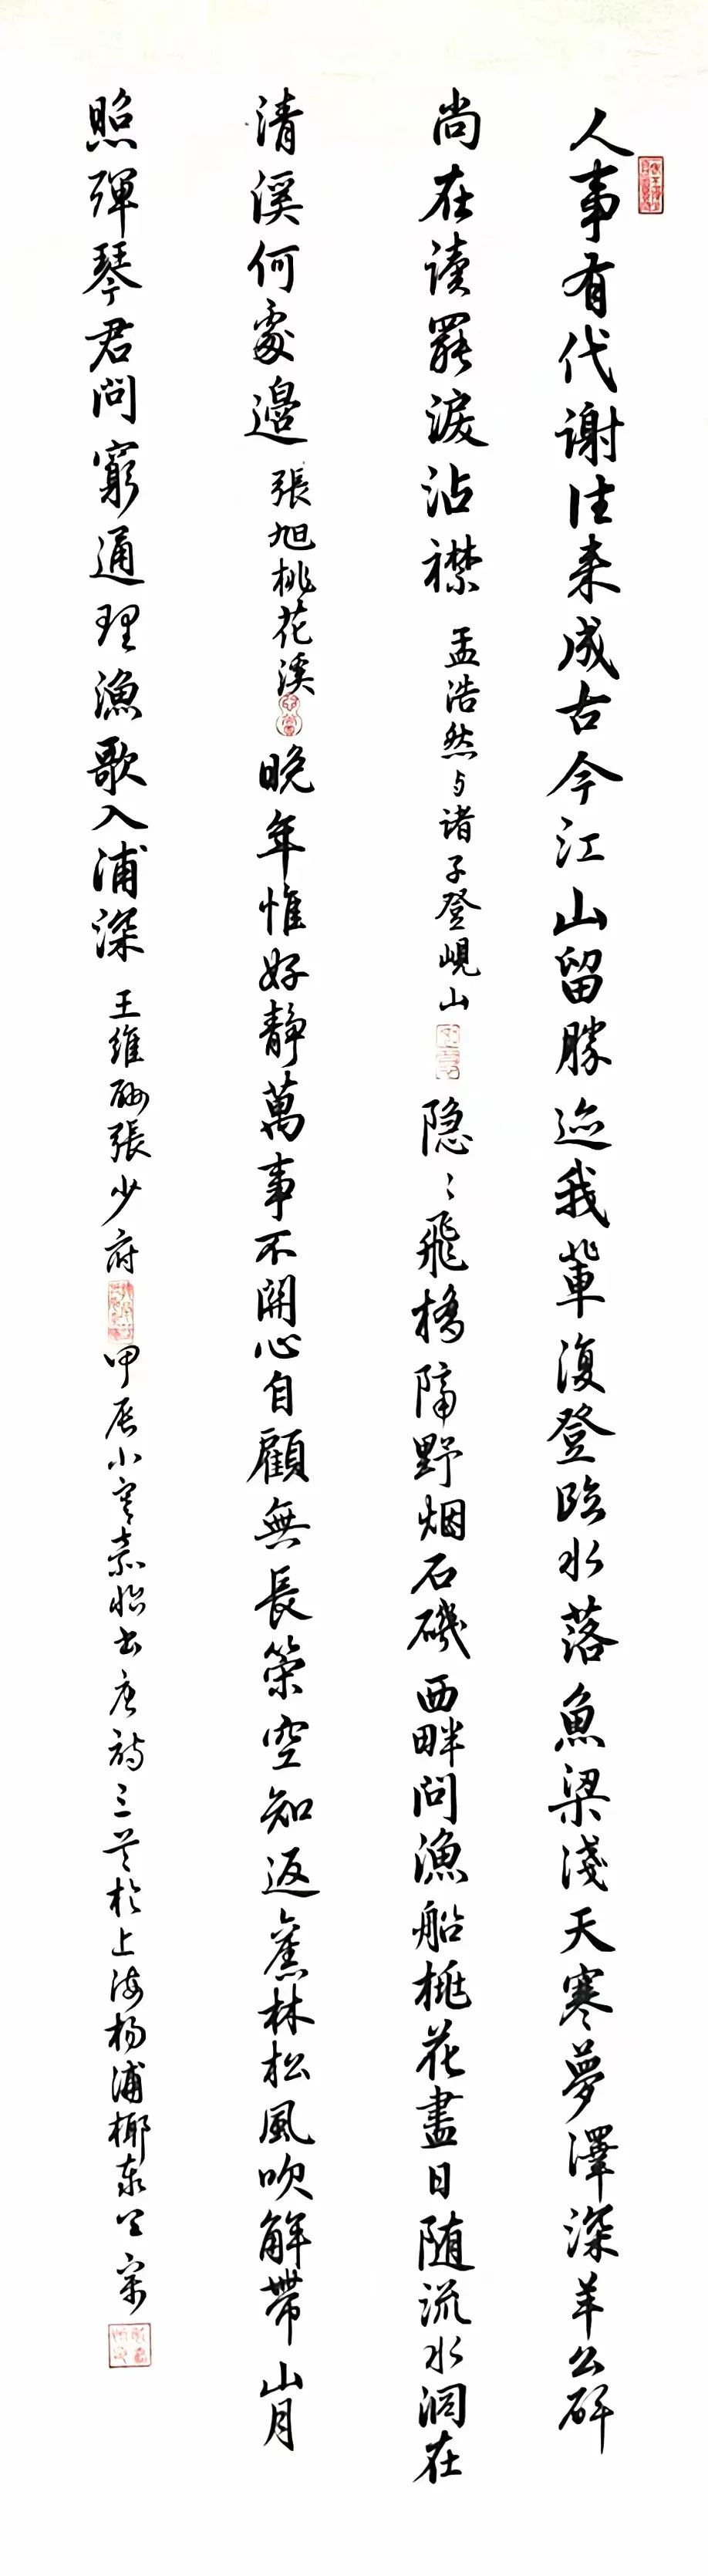 人事有代谢往来成古今江山留勝迹我輩復登临水落魚梁淺天寒夢澤深羊公碑
尚在读罷淚沾襟 孟浩然与诸子登峴山 隐〻飛橋隔野烟石磯西畔问漁船桃花盡日随流水洞在
清溪何處邊 張旭桃花溪 晚年惟好静萬事不關心自顧無長策空知返舊林松風吹解带山月
照彈琴君问窮通理漁歌入浦深 王維酬張少府 甲辰小寒嘉怡书唐詩三首於上海杨浦椰泰